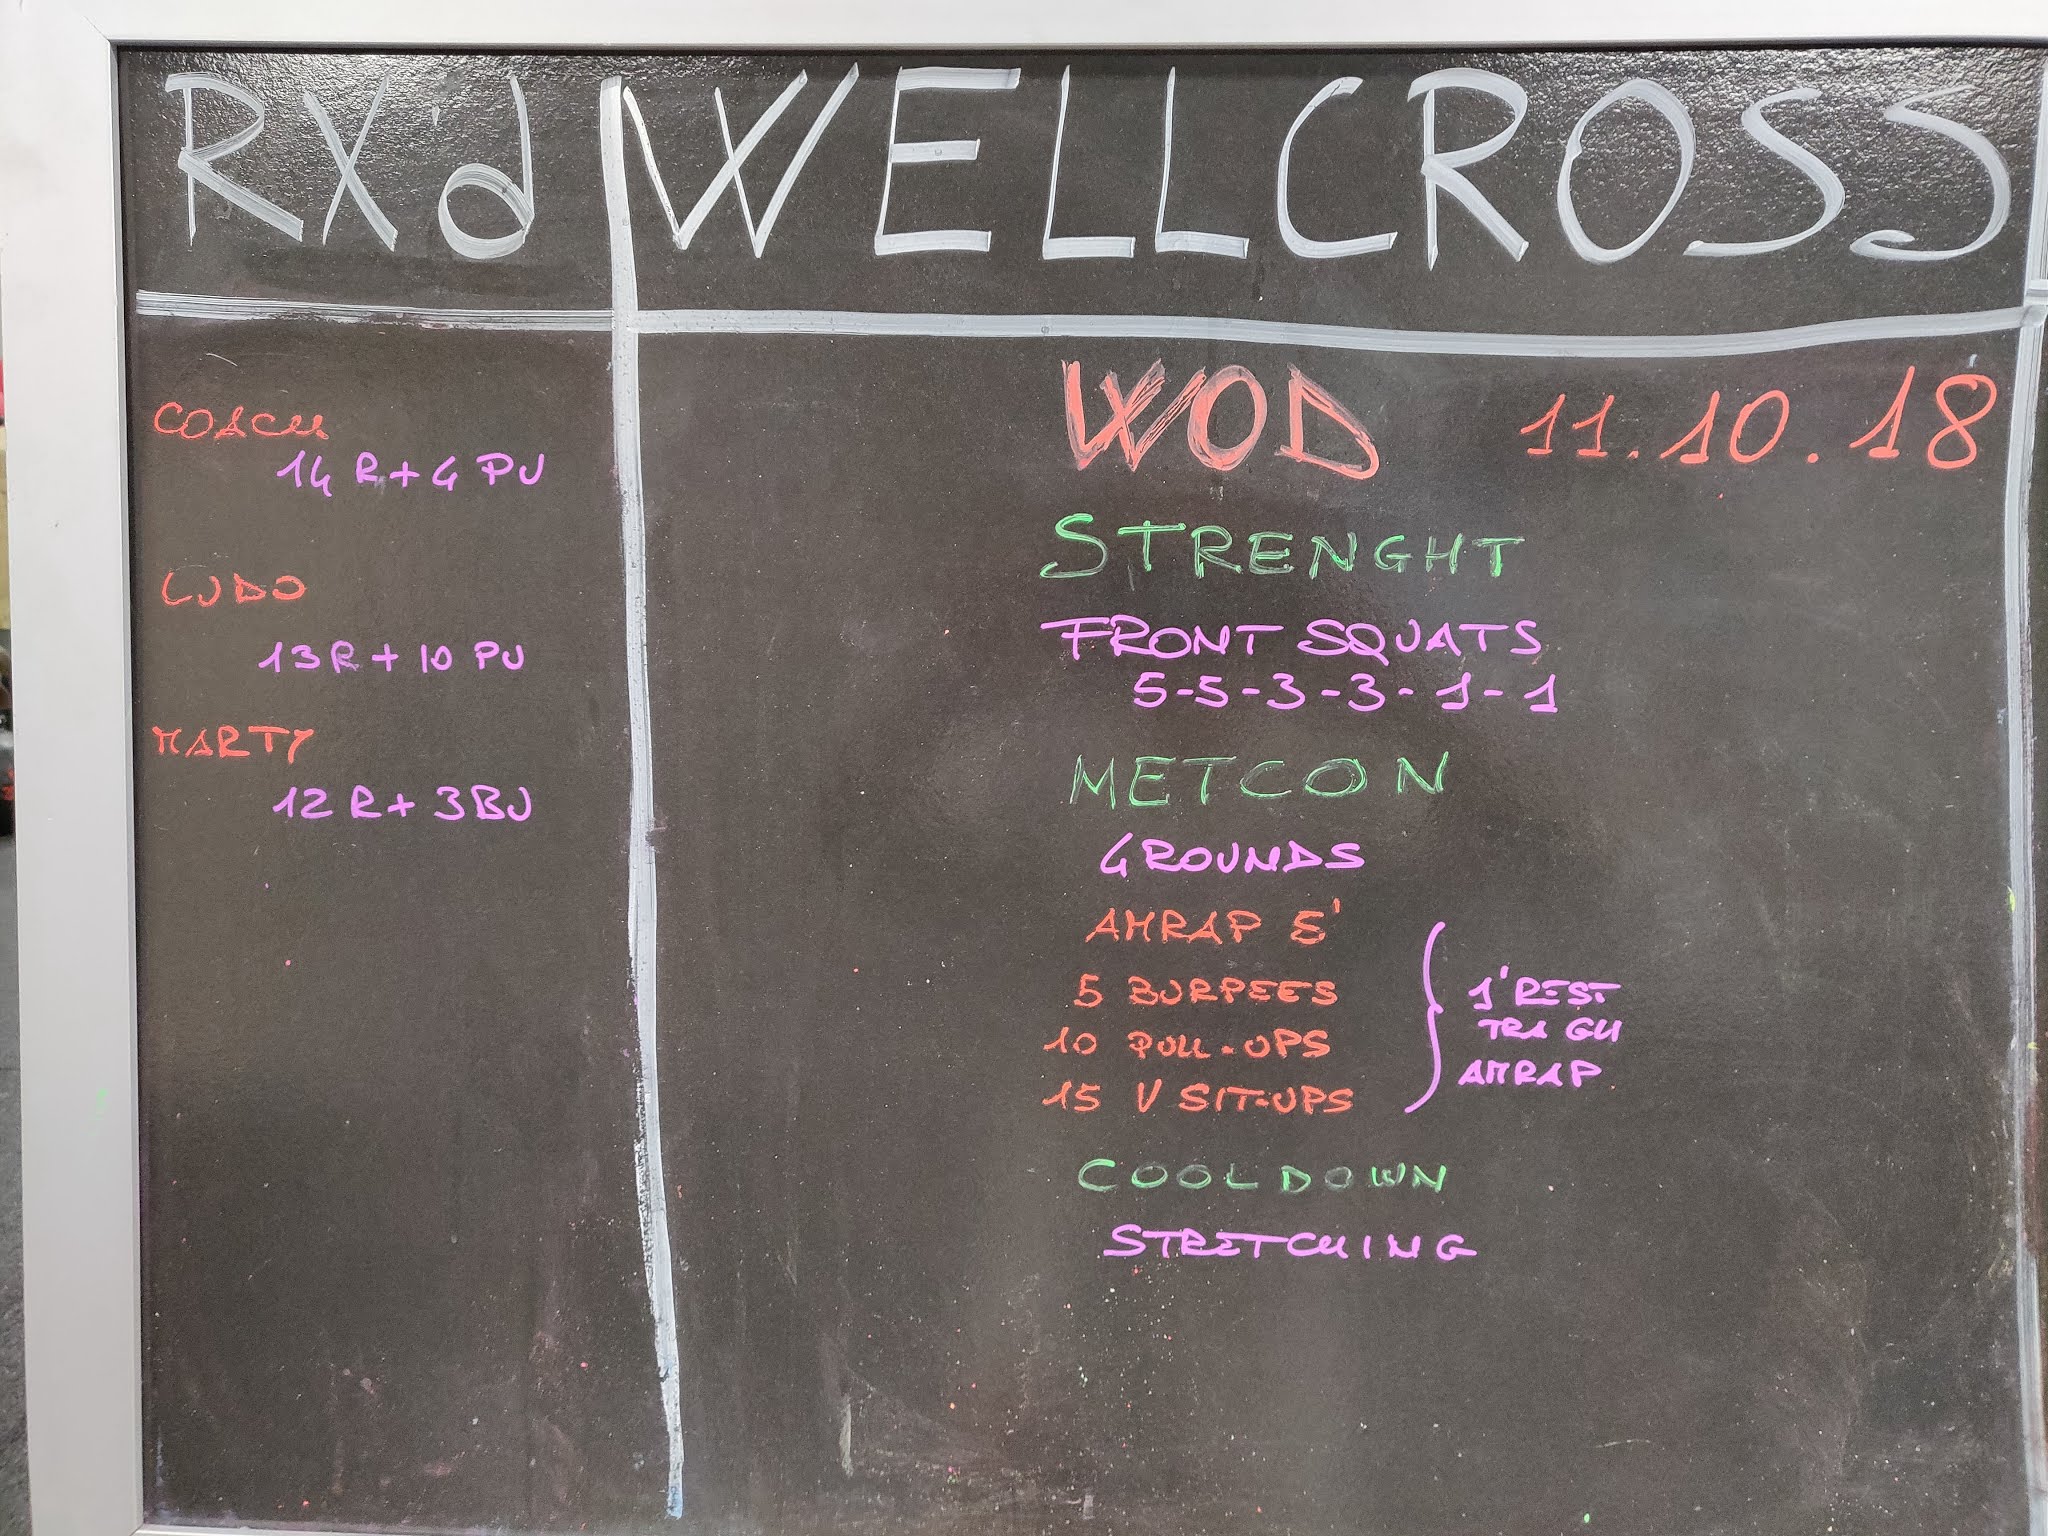 RX'd
WELLCROSS
COACH
14 R + 4 PU
LUDO
13 R + 10 PU
MARTY
12 R + 3 BU
WOD 11.10.18
STRENGHT
FRONT SQUATS
5-5-3-3-1-1
METCON
4 ROUNDS
AMRAP 5'
5 BURPEES
10 PULL-UPS
15 V SIT-UPS
1' REST
TRA GLI
AMRAP
COOLDOWN
STRETCHING